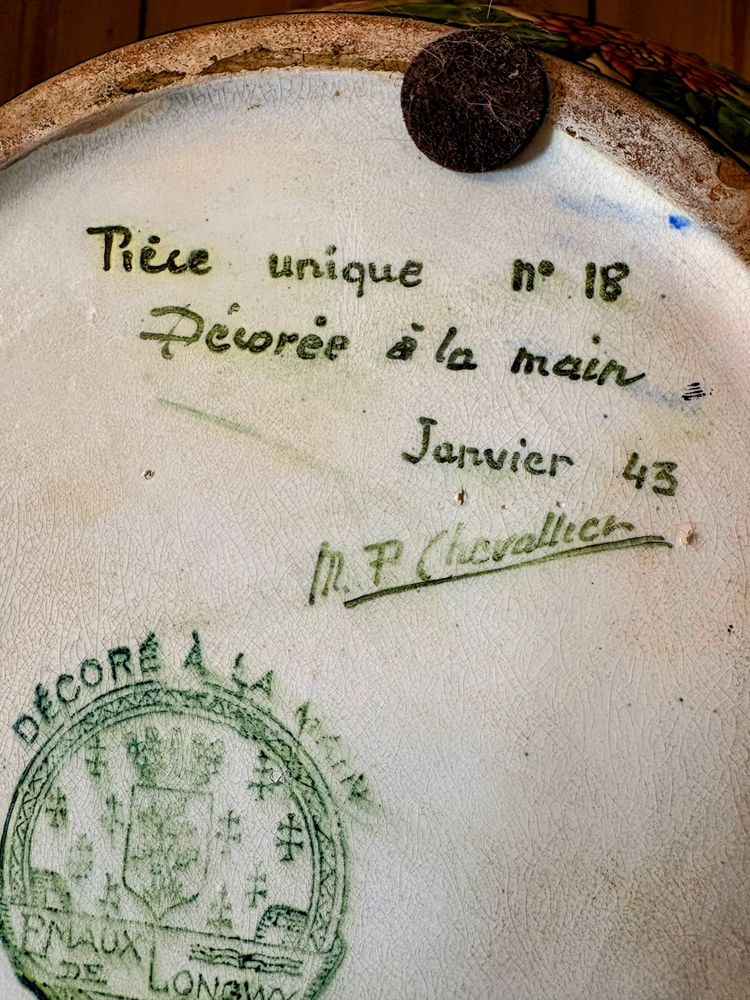 Pièce unique n° 18
Décorée à la main
Janvier 43
M. P Chevallier
DÉCORÉ À LA MAIN
EMAUX
DE LONGWY